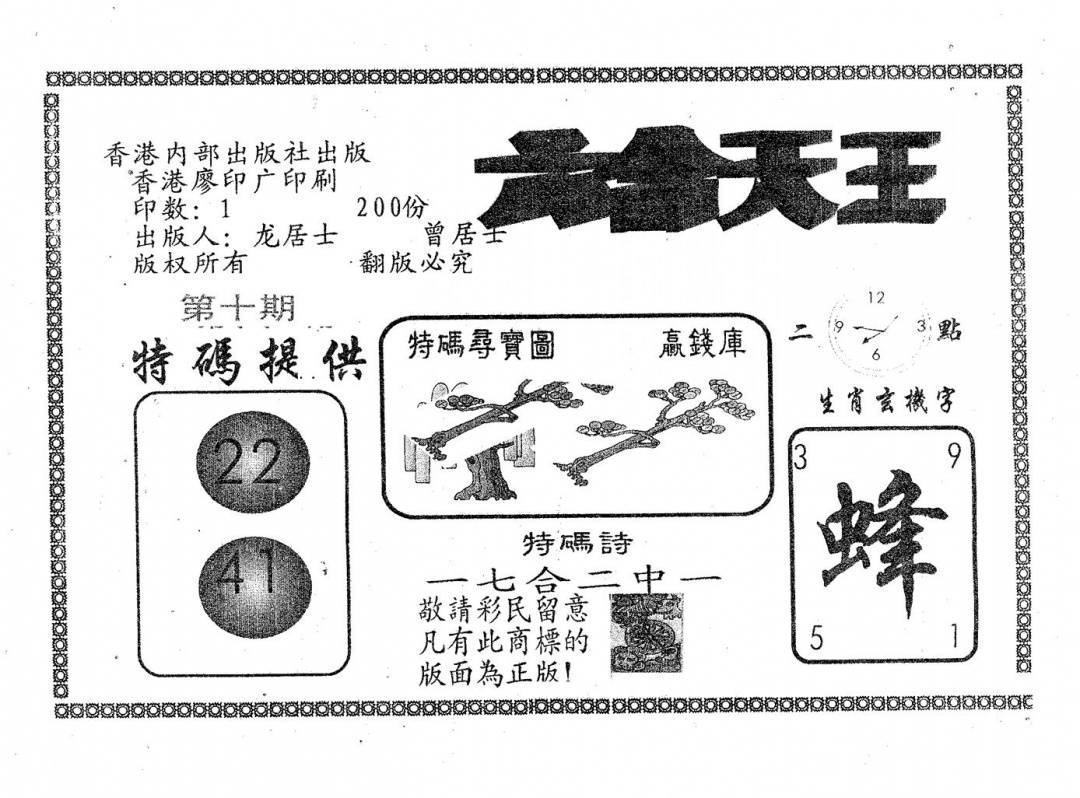 香港内部出版社出版
香港廖印广印刷
印数：1 200份
出版人：龙居士 曾居士
版权所有 翻版必究
六合天王
第十期
特碼提供
22
41
特碼尋寶圖 贏錢庫
12
二 9 3 點
6
生肖玄機字
3 9
蜂
5 1
特碼詩
一七合二中一
敬請彩民留意
凡有此商標的
版面為正版！